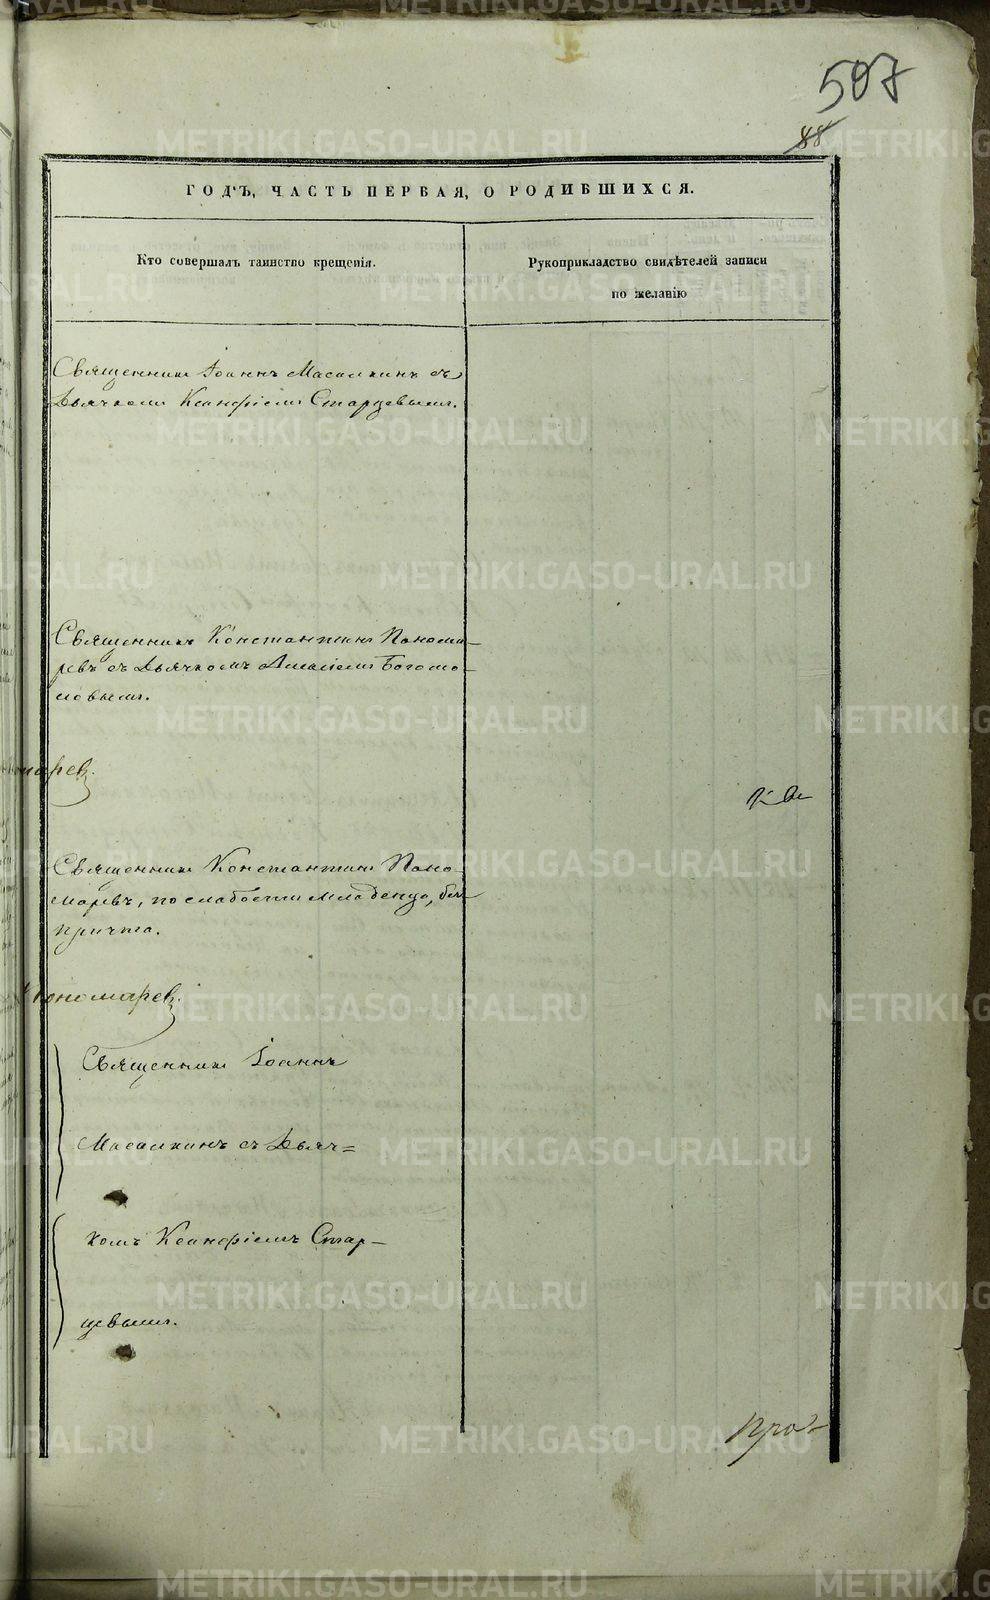 507
88
ГОДЪ, ЧАСТЬ ПЕРВАЯ, О РОДИВШИХСЯ.
Кто совершалъ таинство крещенія.
Рукоприкладство свидѣтелей записи
по желанію
Священникъ Іоаннъ Масалкинъ съ
Дьячкомъ Ксанфіемъ Старцевымъ.
Священникъ Константинъ Понома-
ревъ съ Дьячкомъ Богомо-
ловымъ.
марев
Священникъ Константинъ Поно-
маревъ, по слабости младенца, безъ
причта.
Пономарев
Священникъ Іоаннъ
Масалкинъ съ Дьяч=
комъ Ксанфіемъ Стар-
цевымъ.
METRIKI.GASO-URAL.RU